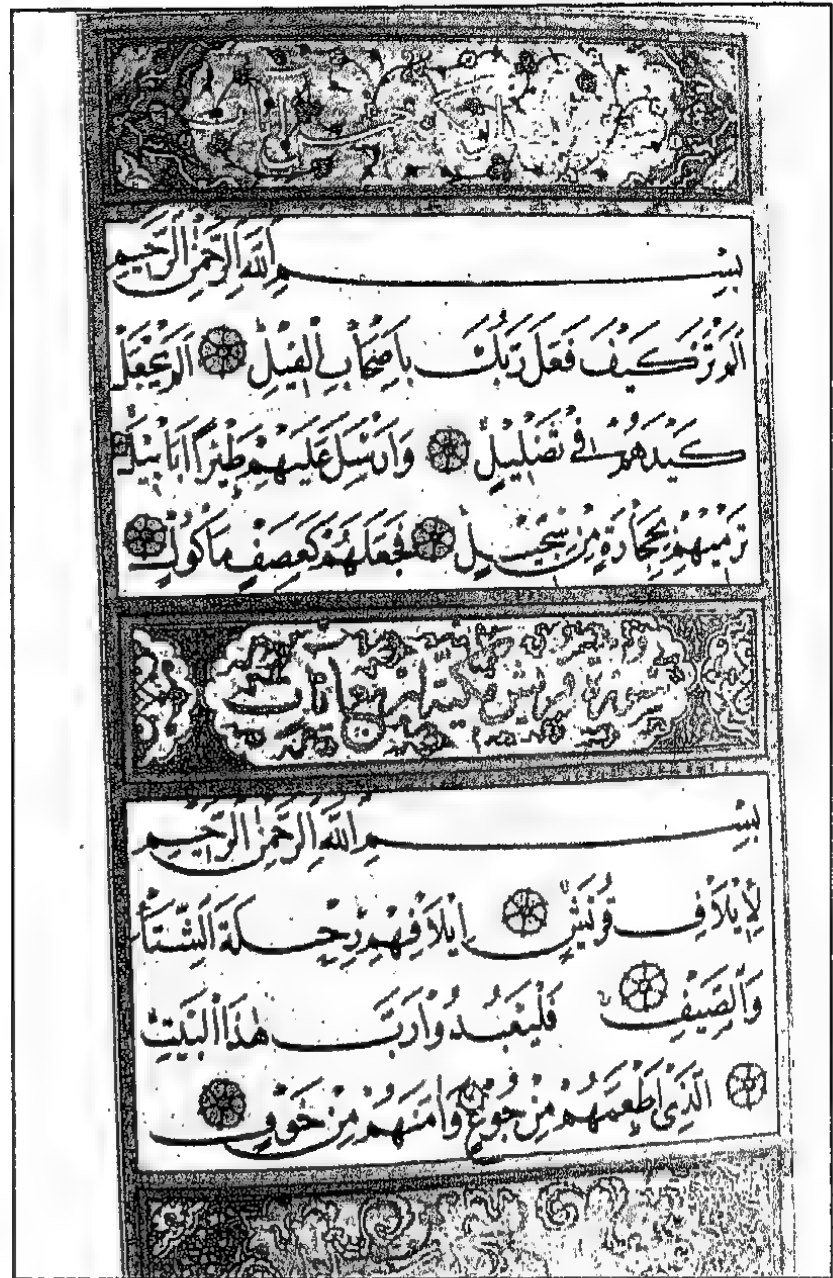 بِسْمِ اللَّهِ الرَّحْمَٰنِ الرَّحِيمِ
أَلَمْ تَرَ كَيْفَ فَعَلَ رَبُّكَ بِأَصْحَابِ الْفِيلِ أَلَمْ يَجْعَلْ
كَيْدَهُمْ فِي تَضْلِيلٍ وَأَرْسَلَ عَلَيْهِمْ طَيْرًا أَبَابِيلَ
تَرْمِيهِمْ بِحِجَارَةٍ مِنْ سِجِّيلٍ فَجَعَلَهُمْ كَعَصْفٍ مَأْكُولٍ
سورة قريش مكية آيات
بِسْمِ اللَّهِ الرَّحْمَٰنِ الرَّحِيمِ
لِإِيلَافِ قُرَيْشٍ إِيلَافِهِمْ رِحْلَةَ الشِّتَاءِ
وَالصَّيْفِ فَلْيَعْبُدُوا رَبَّ هَٰذَا الْبَيْتِ
الَّذِي أَطْعَمَهُمْ مِنْ جُوعٍ وَآمَنَهُمْ مِنْ خَوْفٍ